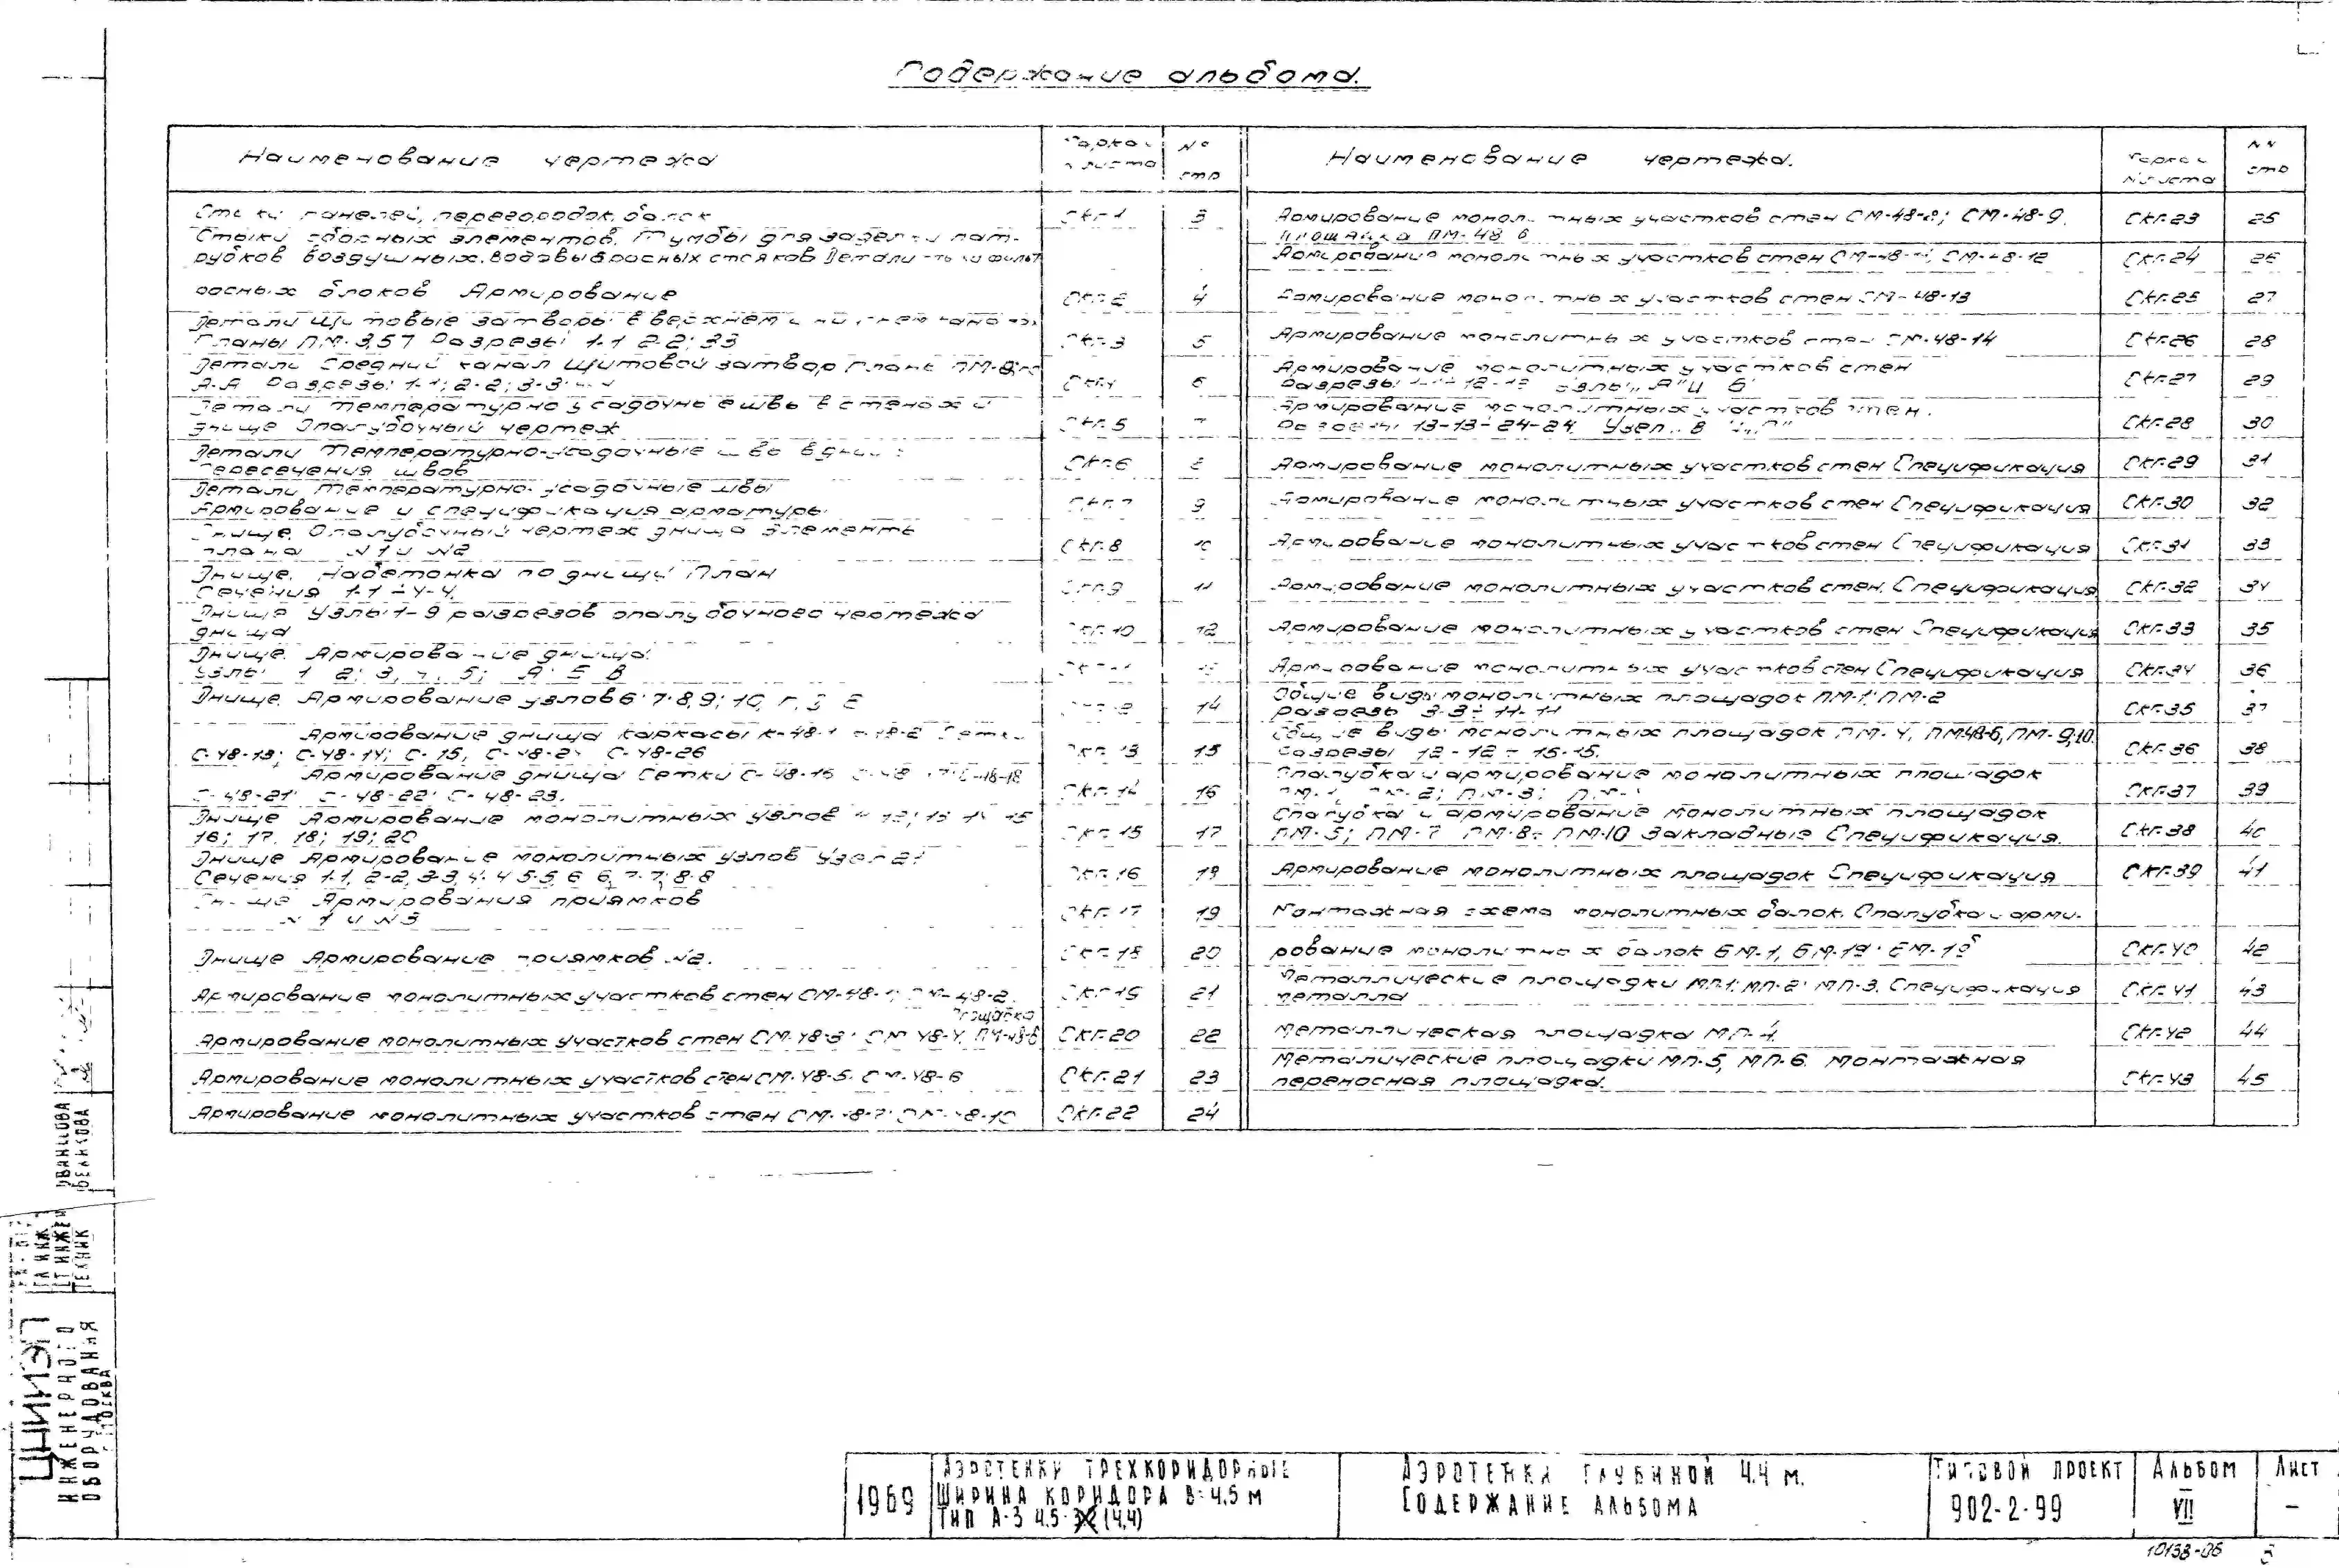 Содержание альбома.
Наименование чертежа
стр
Стыки панелей, перегородок, балок
СКГ-1
3
Стыки сборных элементов. Тумбы для заделки пат-
рубков воздушных, водовыбросных стояков Детали
росных блоков Армирование
СКГ-2
4
Детали Щитовые затворы в верхнем и нижнем
Планы ПМ-3,5,7 Разрезы 1-1 2-2; 3-3
СКГ-3
5
Детали Средний канал Щитовой затвор План
А-А Разрезы 1-1; 2-2; 3-3
СКГ-4
6
Детали Температурно усадочные швы в стенах и
днище Опалубочный чертеж
СКГ-5
7
Детали Температурно-усадочные швы
Пересечения швов
СКГ-6
8
Детали Температурно-усадочные швы
Армирование и спецификация арматуры
СКГ-7
9
Днище. Опалубочный чертеж днища Элементы
плана №1 и №2
СКГ-8
10
Днище. Набетонка по днищу План
Сечения 1-1 ÷ 4-4.
СКГ-9
11
Днище Узлы 1-9 разрезов опалубочного чертежа
днища
СКГ-10
12
Днище. Армирование днища.
Узлы 1 2; 3, 4, 5; А Б В
СКГ-11
13
Днище. Армирование узлов 6; 7; 8, 9; 10, Г, Д Е
СКГ-12
14
Армирование днища каркасы К-48-1
С-48-13; С-48-14; С- 15, С-48-26
СКГ-13
15
Армирование днища Сетки С-48-16
С-48-21; С-48-22; С-48-23.
СКГ-14
16
Днище Армирование монолитных узлов
16; 17, 18; 19; 20
СКГ-15
17
Днище Армирование монолитных узлов Узел 21
Сечения 1-1, 2-2, 3-3, 4-4 5-5, 6 6, 7-7; 8-8
СКГ-16
18
Днище Армирования приямков
№1 и №3
СКГ-17
19
Днище Армирование приямков №2.
СКГ-18
20
Армирование монолитных участков стен СМ-48-1; СМ-48-2.
СКГ-19
21
Площадка
Армирование монолитных участков стен СМ-48-3; СМ 48-4, ПМ-48-6
СКГ-20
22
Армирование монолитных участков стен СМ-48-5. СМ-48-6
СКГ-21
23
Армирование монолитных участков стен СМ-48-7; СМ-48-10
СКГ-22
24
Наименование чертежа.
стр
Армирование монолитных участков стен СМ-48-8; СМ-48-9.
Площадка ПМ-48 6
СКГ-23
25
Армирование монолитных участков стен СМ-48-11; СМ-48-12
СКГ-24
26
Армирование монолитных участков стен СМ-48-13
СКГ-25
27
Армирование монолитных участков стен СМ-48-14
СКГ-26
28
Армирование монолитных участков стен
Разрезы 1-1 ÷ 12-12 Узлы „А" и „Б"
СКГ-27
29
Армирование монолитных участков стен.
Разрезы 13-13 ÷ 24-24. Узел „В"
СКГ-28
30
Армирование монолитных участков стен Спецификация
СКГ-29
31
Армирование монолитных участков стен Спецификация
СКГ-30
32
Армирование монолитных участков стен Спецификация
СКГ-31
33
Армирование монолитных участков стен. Спецификация
СКГ-32
34
Армирование монолитных участков стен Спецификация
СКГ-33
35
Армирование монолитных участков стен Спецификация
СКГ-34
36
Общие виды монолитных площадок ПМ-1; ПМ-2
разрезы 3-3 ÷ 11-11
СКГ-35
37
Общие виды монолитных площадок ПМ-4, ПМ48-6, ПМ-9,10.
Разрезы 12-12 ÷ 15-15.
СКГ-36
38
Опалубка и армирование монолитных площадок
ПМ-1, ПМ-2; ПМ-3; ПМ-4
СКГ-37
39
Опалубка и армирование монолитных площадок
ПМ-5; ПМ-7 ПМ-8 ÷ ПМ-10 Закладные Спецификация.
СКГ-38
40
Армирование монолитных площадок Спецификация
СКГ-39
41
Монтажная схема монолитных балок. Опалубка и арми-
рование монолитных балок БМ-1, БМ-1а; БМ-1б
СКГ-40
42
Металлические площадки МП-1; МП-2; МП-3. Спецификация
металла
СКГ-41
43
Металлическая площадка МП-4.
СКГ-42
44
Металические площадки МП-5, МП-6. Монтажная
переносная площадка.
СКГ-43
45
ИВАНЦОВА
БЕЛИКОВА
ТЕХНИК
ЦНИИЭП
ИНЖЕНЕРНОГО
ОБОРУДОВАНИЯ
МОСКВА
1969
АЭРОТЕНКИ ТРЕХКОРИДОРНЫЕ
ШИРИНА КОРИДОРА В=4,5 М
ТИП А-3 4.5-3,2 (4,4)
АЭРОТЕНКИ ГЛУБИНОЙ 4.4 М.
СОДЕРЖАНИЕ АЛЬБОМА
ТИПОВОЙ ПРОЕКТ
902-2-99
АЛЬБОМ
VII
ЛИСТ
–
10138-06 3